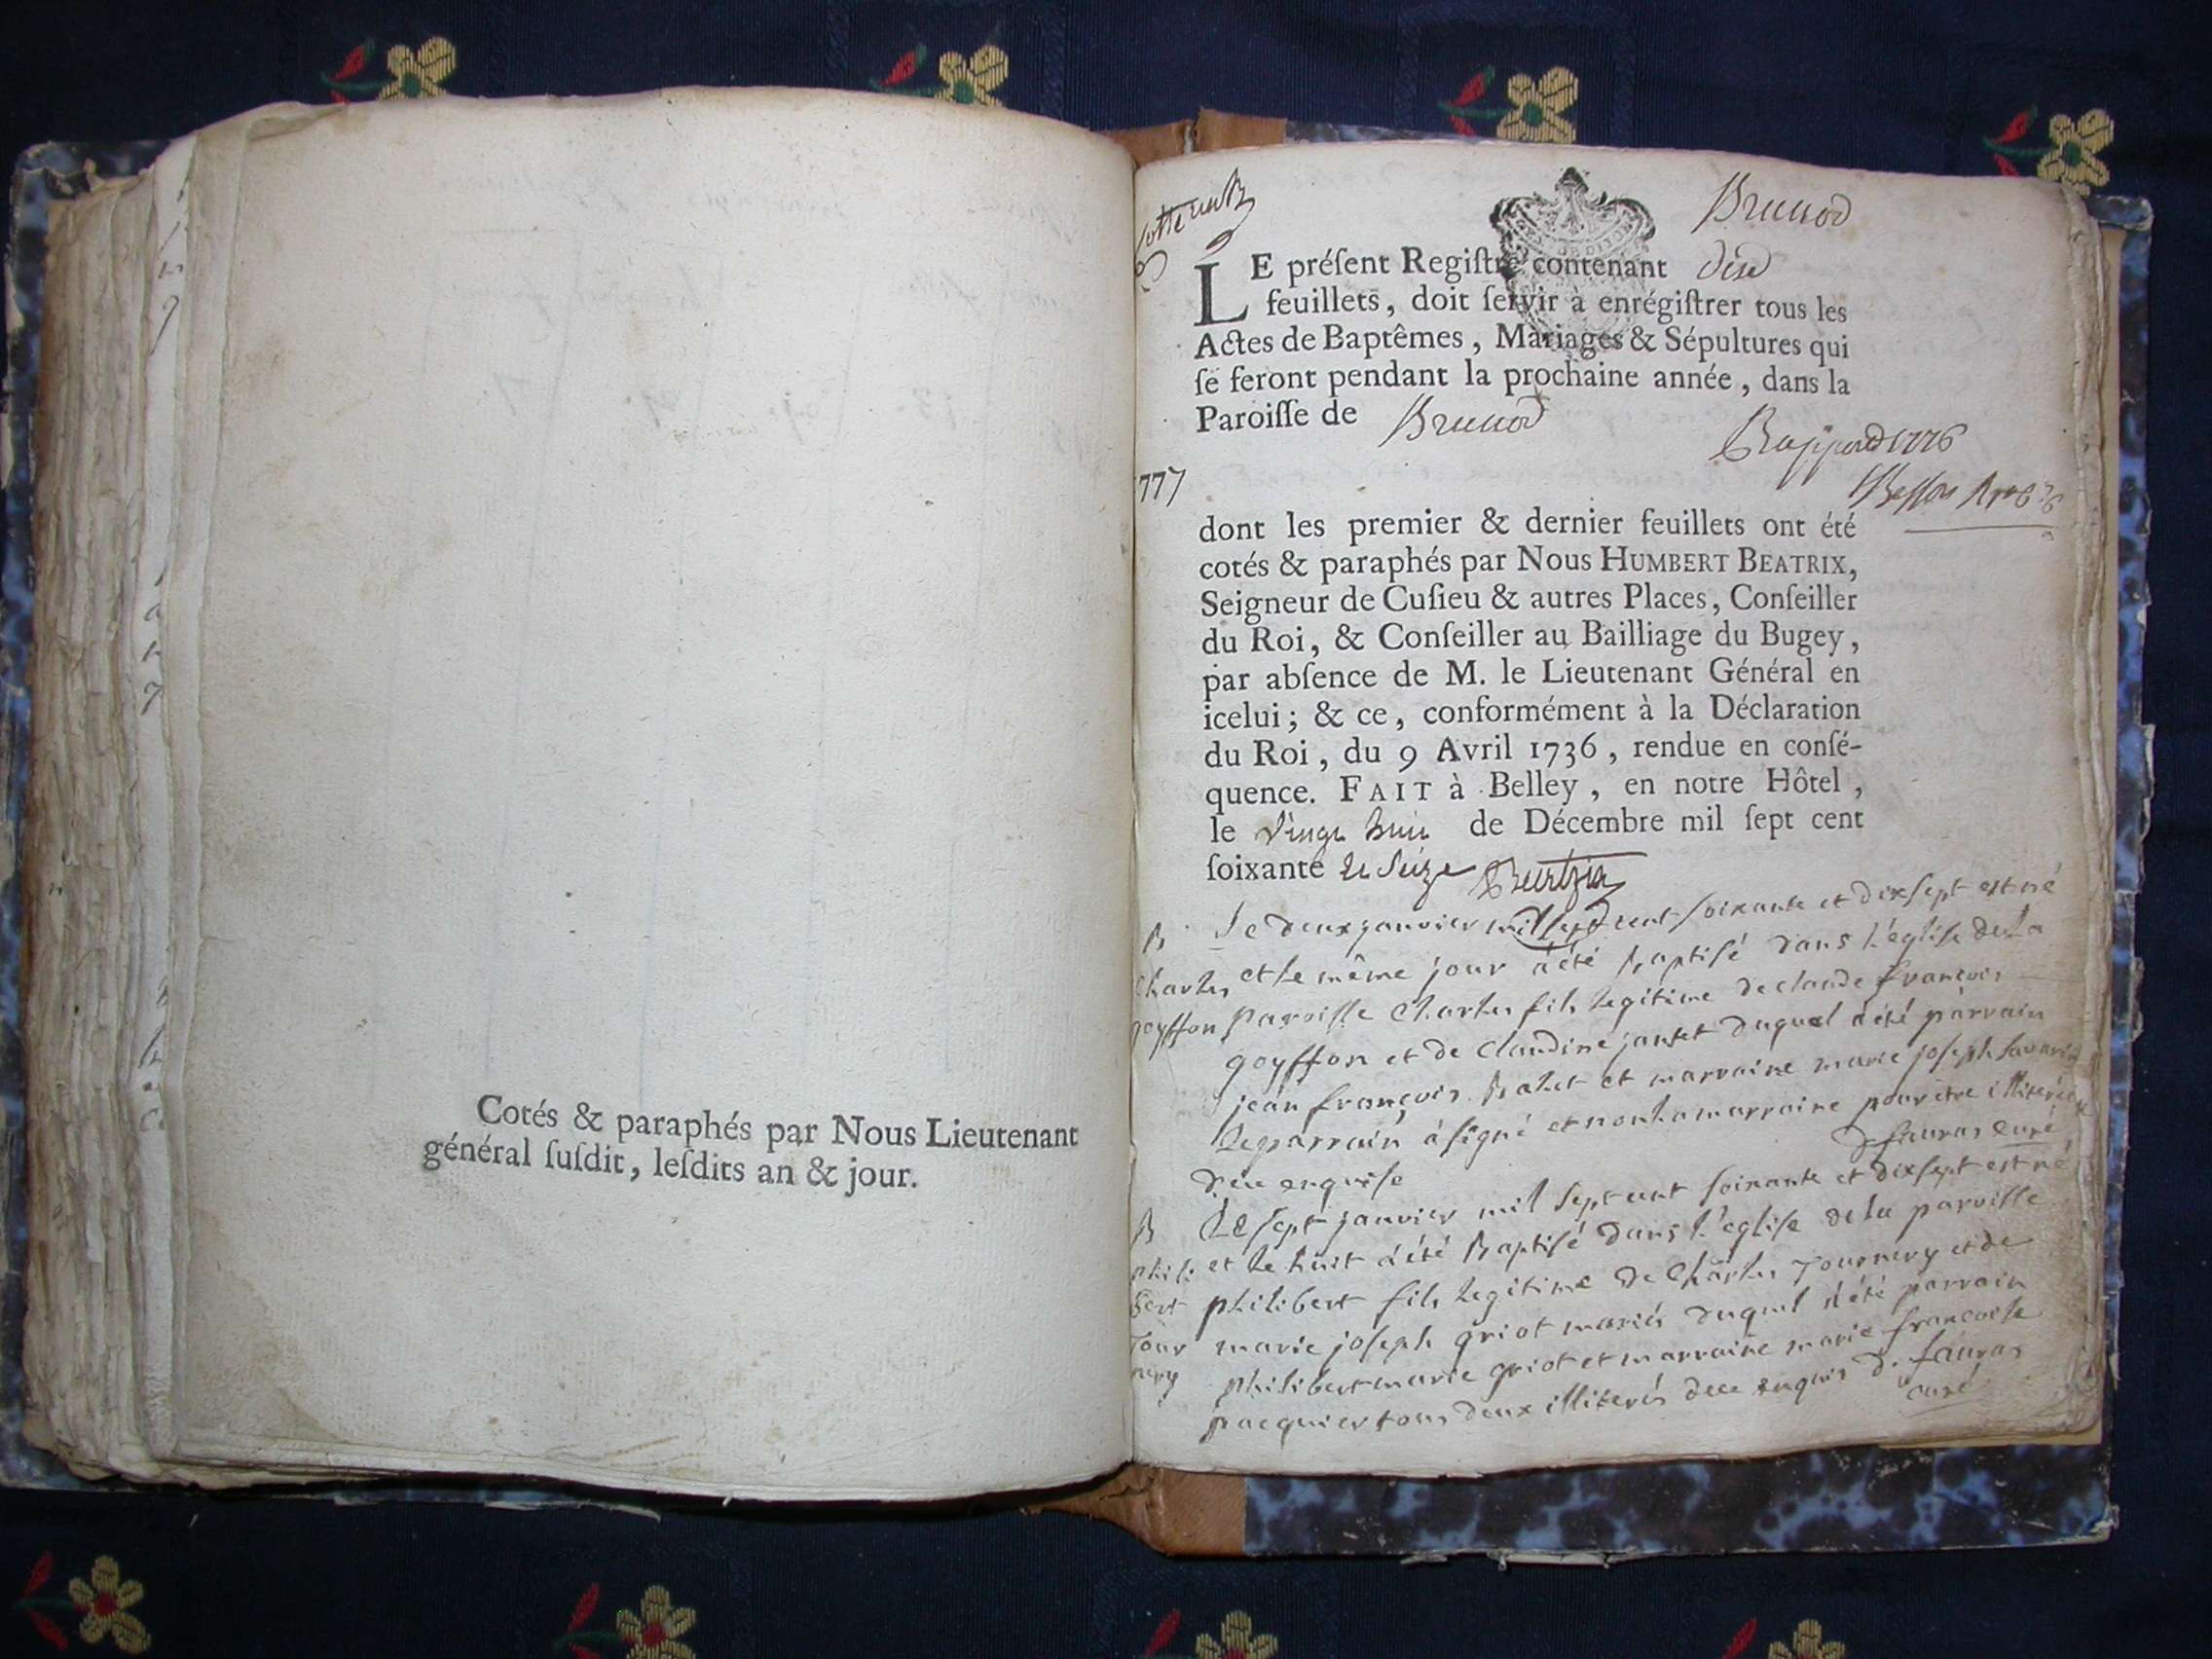 Cotés & paraphés par Nous Lieutenant
général ſuſdit, leſdits an & jour.
Brenod
LE préſent Regiſtre contenant dix
feuillets, doit ſervir à enrégiſtrer tous les
Actes de Baptêmes, Mariages & Sépultures qui
ſe feront pendant la prochaine année, dans la
Paroiſſe de Brenod
1777
dont les premier & dernier feuillets ont été
cotés & paraphés par Nous HUMBERT BEATRIX,
Seigneur de Cuſieu & autres Places, Conſeiller
du Roi, & Conſeiller au Bailliage du Bugey,
par abſence de M. le Lieutenant Général en
icelui; & ce, conformément à la Déclaration
du Roi, du 9 Avril 1736, rendue en conſé-
quence. FAIT à Belley, en notre Hôtel,
le vingt huit de Décembre mil ſept cent
ſoixante et seize
B
Charles
goyffon
Le deux janvier mil sept cent soixante et dix sept est né
et le même jour à été baptisé dans l'église de la
paroisse Charles fils legitime de claude françois
goyffon et de Claudine jantet duquel à été parrain
jean françois Balet et marraine marie joseph savarin
le parrain à signé et non la marraine pour être illiterée
de ce enquise D. fauras curé
B
phili
bert
Tour
nery
Le sept janvier mil sept cent soixante et dix sept est né
et le huit à été Baptisé dans l'eglise de la paroisse
philibert fils legitime de Charles Tournery et de
marie joseph griot mariés duquel à été parrain
philibert marie griot et marraine marie françoise
pacquier tous deux illiterés de ce enquis D. fauras
curé